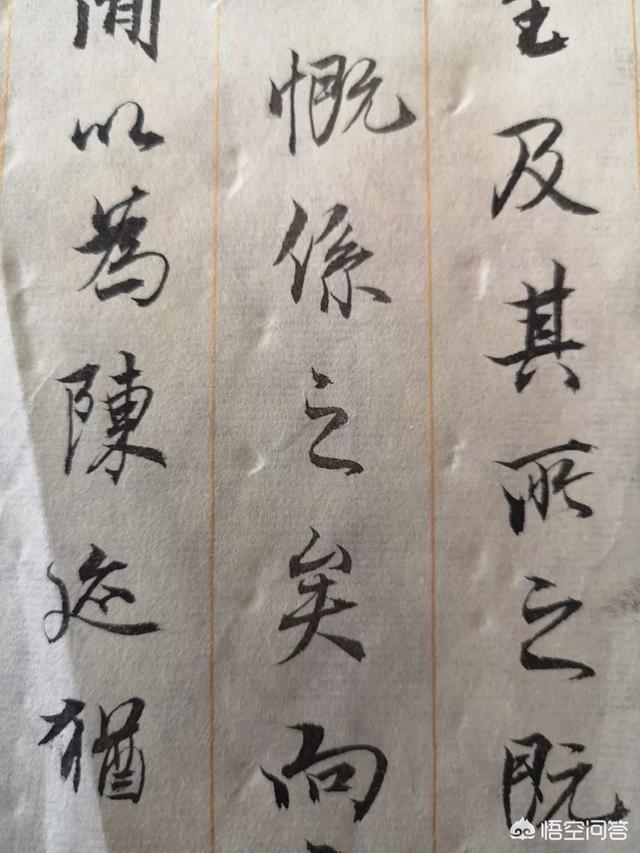 至及其所之既
慨係之矣向
間以為陳迹猶
悟空问答